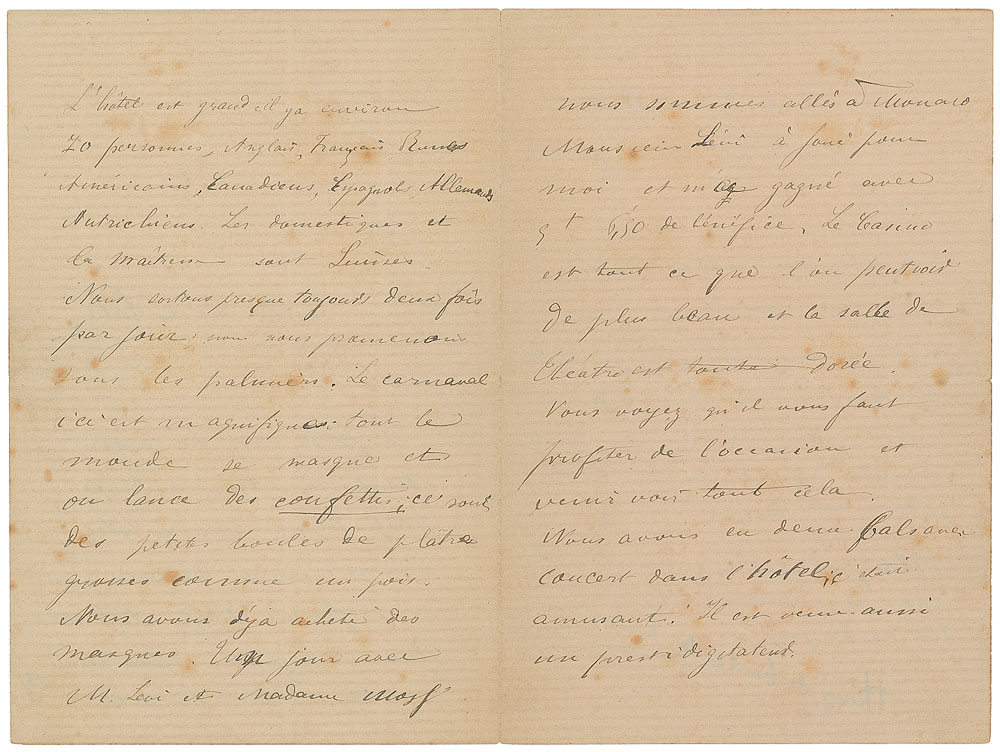 L'hôtel est grand il ya environ
70 personnes, Anglais, Français Russes
Américains, Canadiens, Espagnols, Allemands
Autrichiens. Les domestiques et
la maîtresse sont Suisses.
Nous sortons presque toujours deux fois
par jour, nous nous promenons
sous les palmiers. Le carnaval
ici est magnifique. tout le
monde se masque et
on lance des confettis, ce sont
des petites boules de plâtre
grosses comme un pois.
Nous avons déja acheté des
masques. Un jour avec
M. Levi et Madame
nous sommes allés à Monaco
Monsieur Lévi à joué pour
moi et m'a gagné avec
5f 6,50 de bénéfice. Le Casino
est tout ce que l'on peut voir
de plus beau et la salle de
théâtre est toute dorée.
Vous voyez qu'il vous faut
profiter de l'occasion et
venir voir tout cela.
Nous avons eu deux bals avec
concert dans l'hôtel, ç'était
amusant. Il est venu aussi
un prestidigitateur.